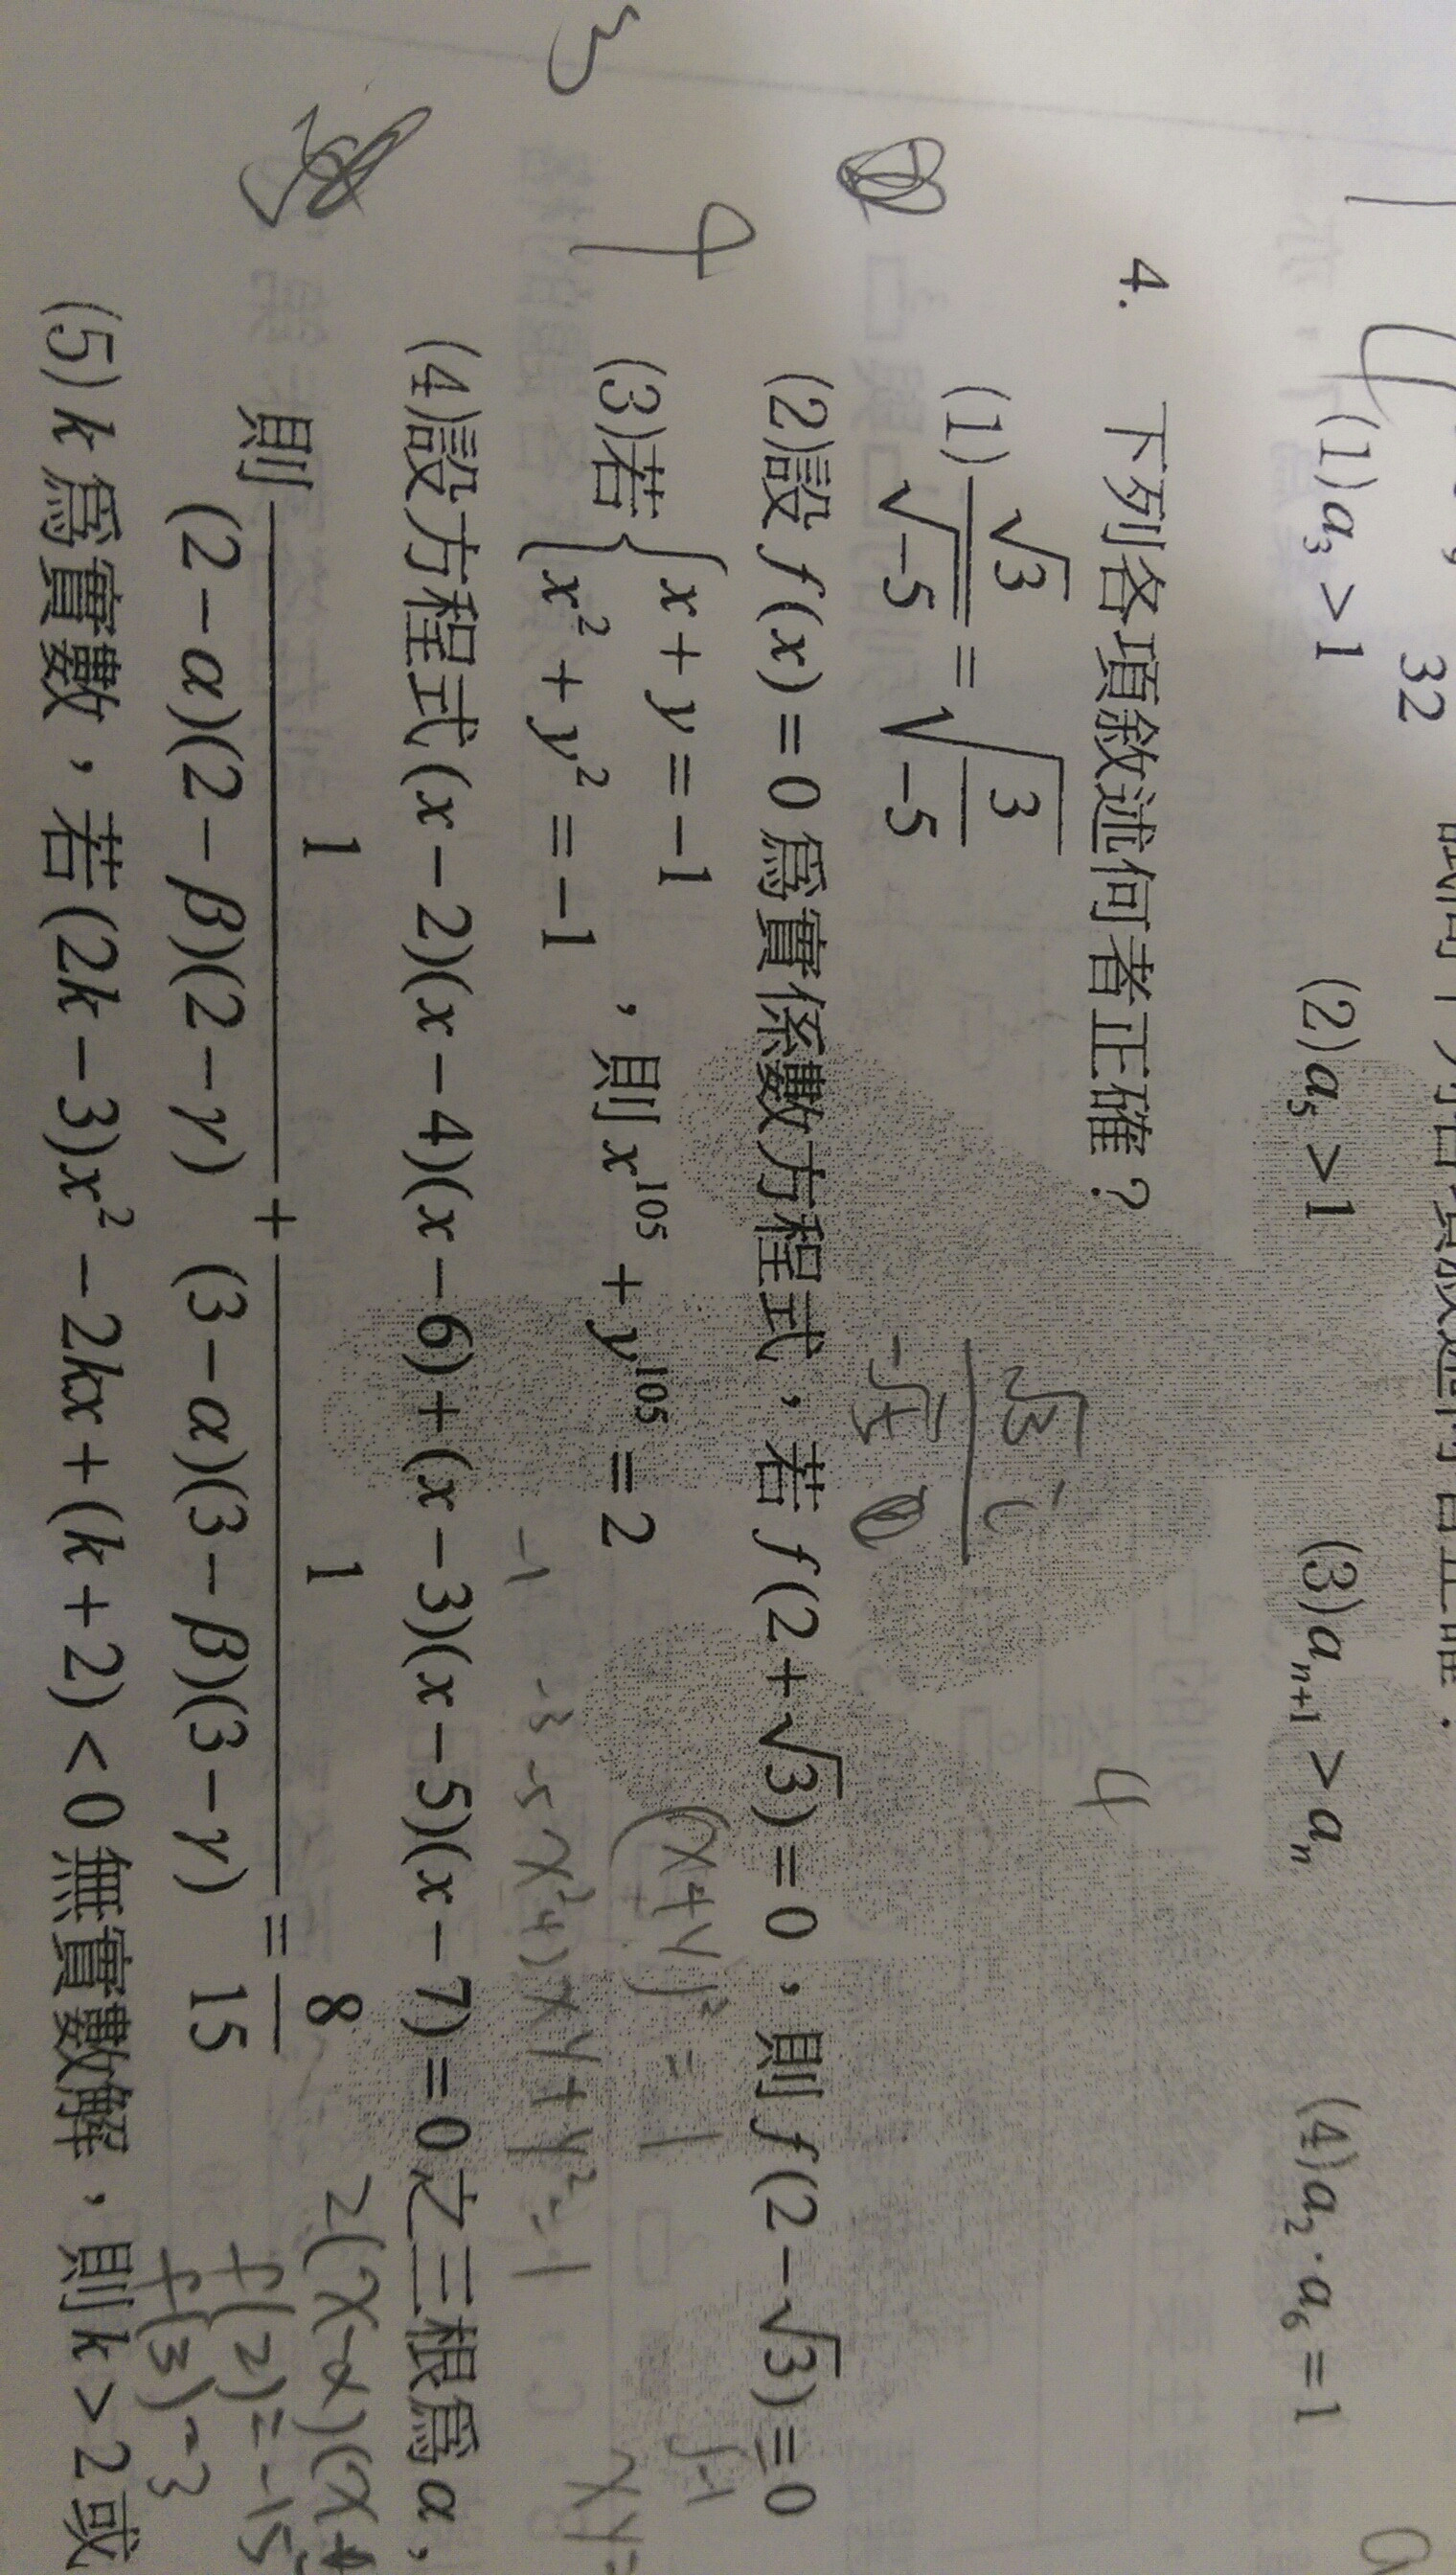 32
(1) a₃ > 1 (2) a₅ > 1 (3) aₙ₊₁ > aₙ (4) a₂·a₆ = 1
4. 下列各項敘述何者正確？
(1) √3/√-5 = √(3/-5)
(2)設 f(x) = 0 為實係數方程式，若 f(2+√3) = 0，則 f(2-√3) = 0
(3)若 { x + y = -1
x² + y² = -1 ，則 x¹⁰⁵ + y¹⁰⁵ = 2
(4)設方程式 (x-2)(x-4)(x-6)+(x-3)(x-5)(x-7) = 0 之三根為 α，
則 1/((2-α)(2-β)(2-γ)) + 1/((3-α)(3-β)(3-γ)) = 8/15
(5) k 為實數，若 (2k-3)x² - 2kx + (k+2) < 0 無實數解，則 k > 2 或
4
(x+y)² = 1
-1 -3 -5
x²+2xy+y²=1
xy=
2(x-α)(x
f(2)=-15
f(3)-3